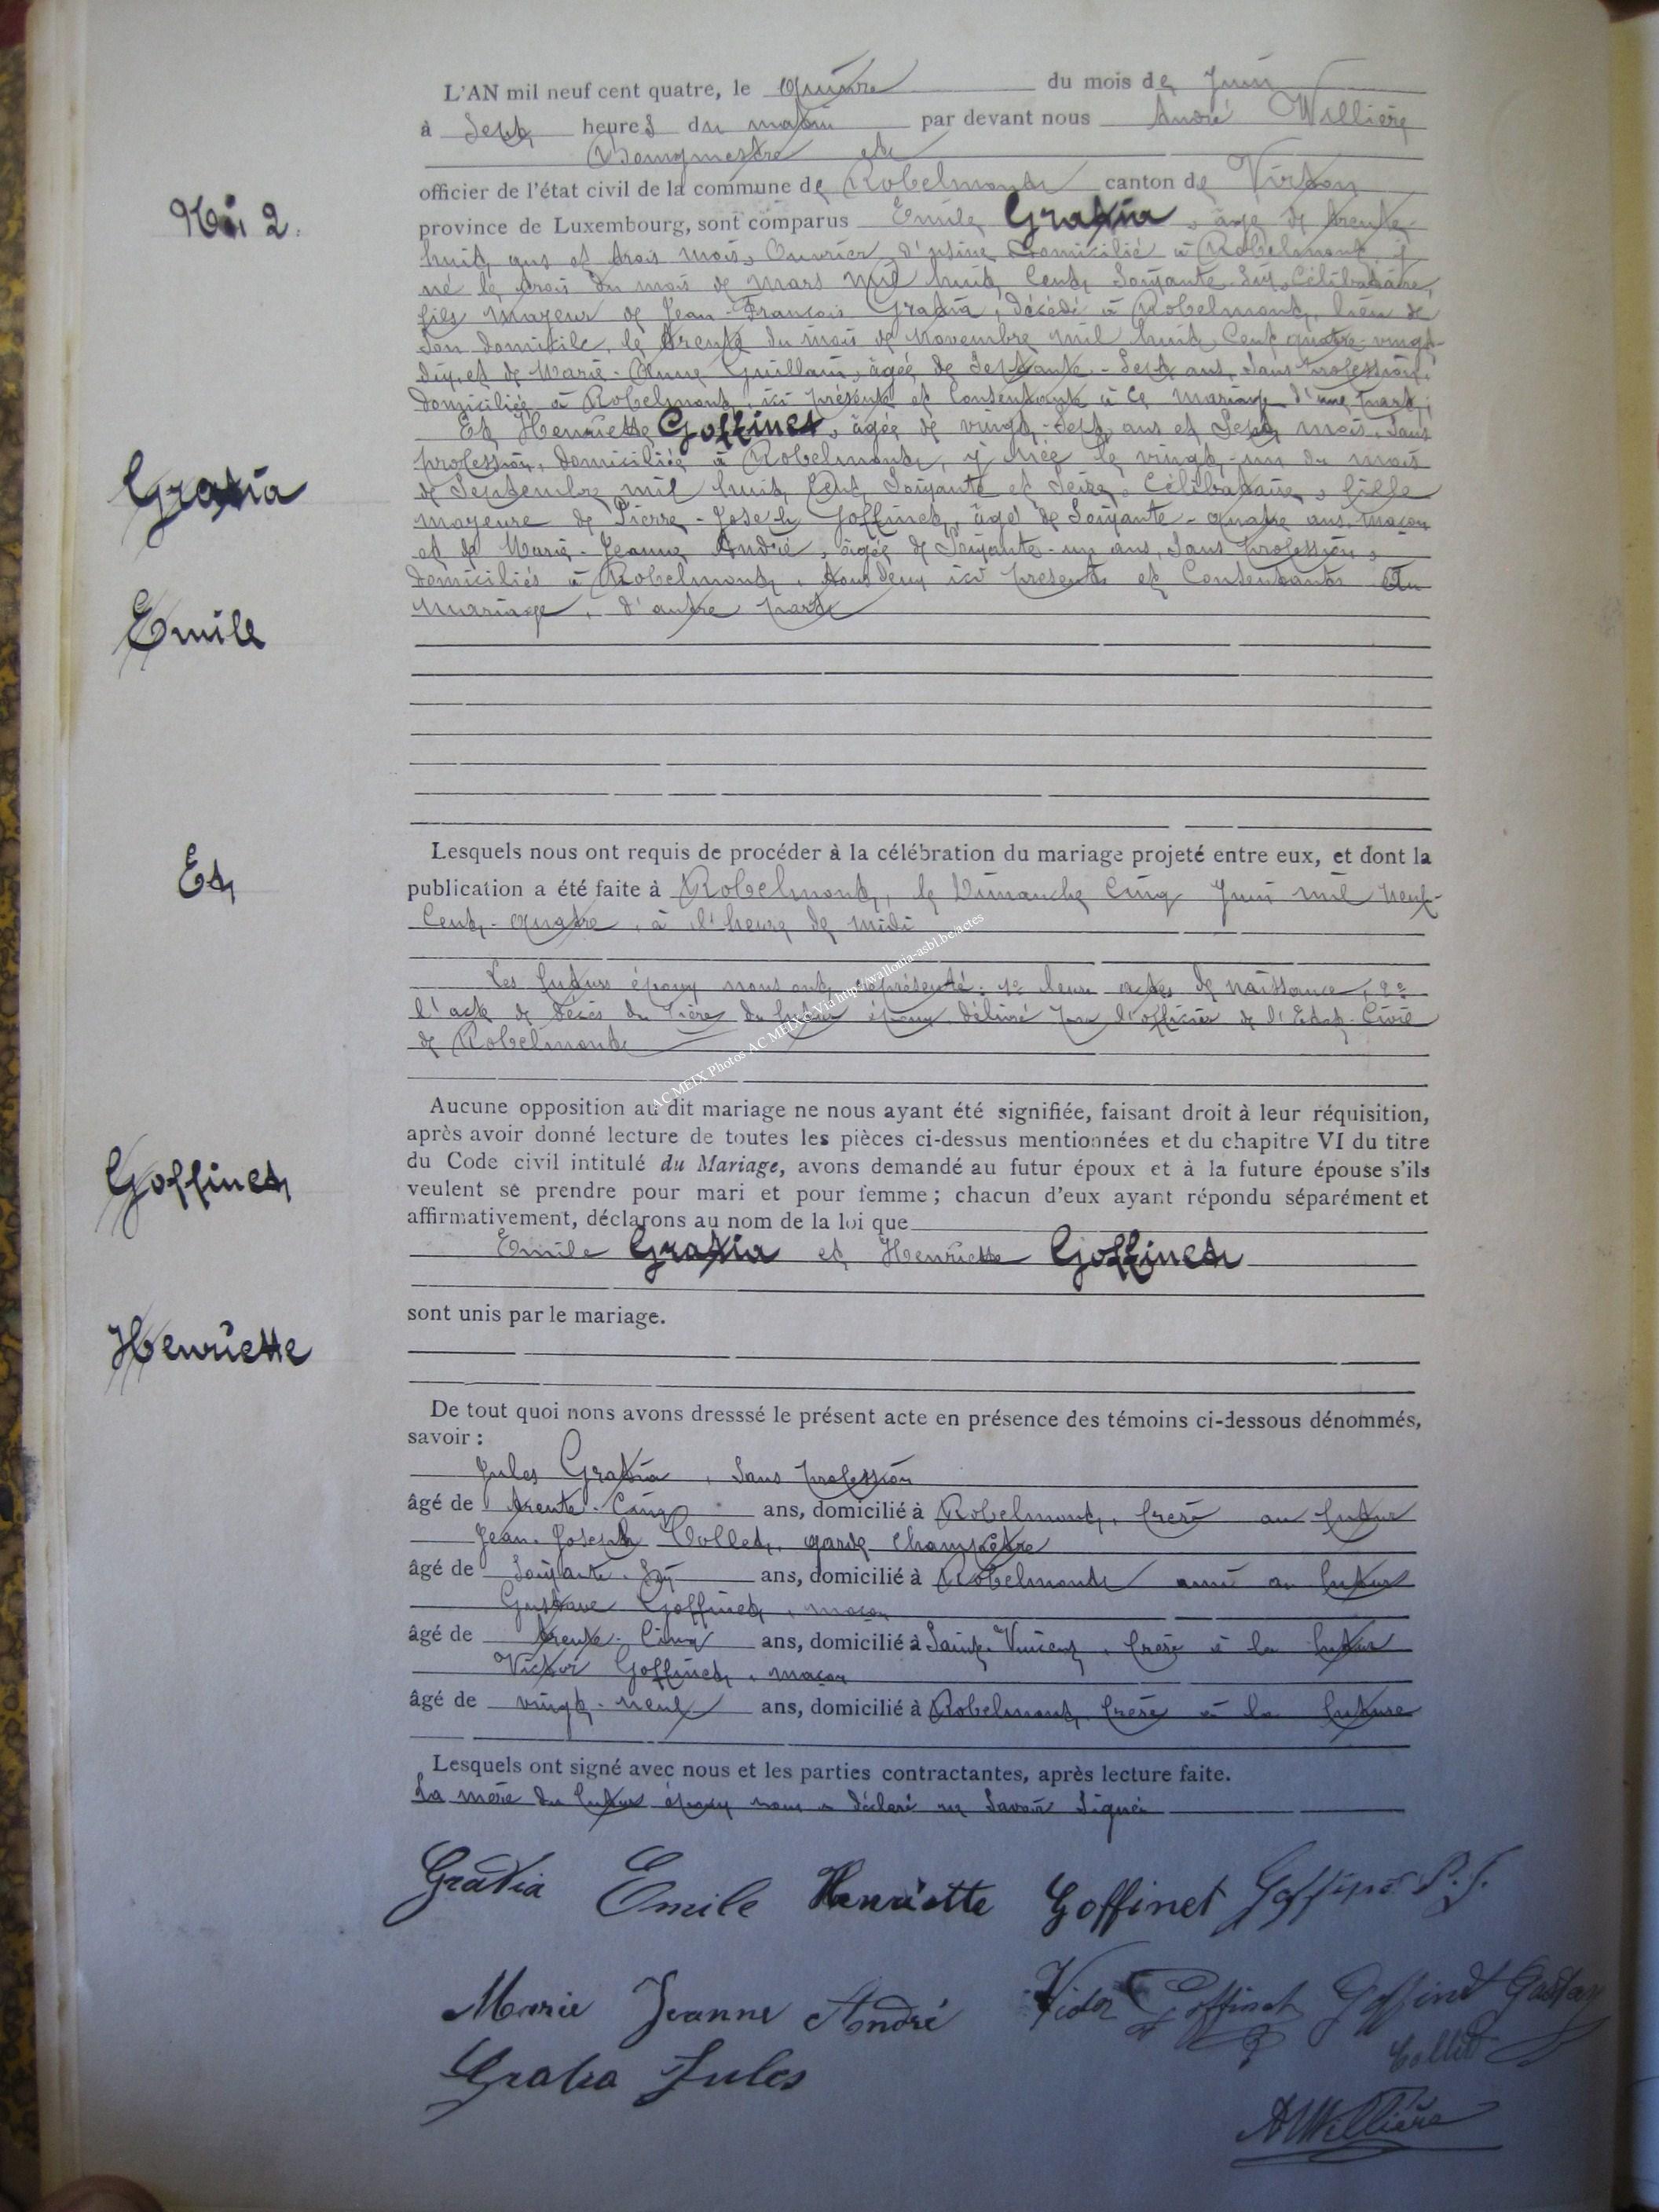 L'AN mil neuf cent quatre, le quinze du mois de Juin
à Sept heures du matin par devant nous André Willière
Bourgmestre et
officier de l'état civil de la commune de Robelmont canton de Virton
N° 2.
province de Luxembourg, sont comparus Emile Gratia, âgé de trente
huit ans et trois mois, Ouvrier d'usine domicilié à Robelmont, y
né le trois du mois de mars mil huit Cent Soixante-Six, Célibataire,
fils majeur de Jean-François Gratia, décédé à Robelmont, lieu de
Son domicile, le trente du mois de Novembre mil huit Cent quatre-vingt-
dix, et de Marie-Anne Guillain, âgée de Septante-Sept ans, Sans profession,
domiciliée à Robelmont, ici présente et Consentante à Ce mariage d'une part,
Et Henriette Goffinet, âgée de vingt-Sept ans et Sept mois, Sans
profession, domiciliée à Robelmont, y née le vingt-un du mois
Gratia
de Septembre mil huit Cent Soixante et Seize, Célibataire, fille
majeure de Pierre-Joseph Goffinet, âgé de Soixante-quatre ans, maçon
et de Marie-Jeanne André, âgée de Soixante-un ans, Sans profession,
domiciliés à Robelmont, tous deux ici présents et Consentants Au
Emile
mariage, d'autre part
Lesquels nous ont requis de procéder à la célébration du mariage projeté entre eux, et dont la
Et
publication a été faite à Robelmont, le Dimanche Cinq Juin mil neuf-
Cent-quatre, à l'heure de midi
Les futurs époux nous ont représenté: 1° leurs actes de naissance, 2°
l'acte de décès du Père du futur époux délivré par l'officier de l'Etat-Civil
de Robelmont
AC MEIX Photos AC MEIX & Via http://wallonia-asbl.be/actes
Aucune opposition au dit mariage ne nous ayant été signifiée, faisant droit à leur réquisition,
après avoir donné lecture de toutes les pièces ci-dessus mentionnées et du chapitre VI du titre
du Code civil intitulé du Mariage, avons demandé au futur époux et à la future épouse s'ils
Goffinet
veulent se prendre pour mari et pour femme ; chacun d'eux ayant répondu séparément et
affirmativement, déclarons au nom de la loi que
Emile Gratia et Henriette Goffinet
sont unis par le mariage.
Henriette
De tout quoi nons avons dresssé le présent acte en présence des témoins ci-dessous dénommés,
savoir :
Jules Gratia, Sans profession
âgé de trente-Cinq ans, domicilié à Robelmont, frère au futur
Jean-Joseph Collet, garde Champêtre
âgé de Soixante-Six ans, domicilié à Robelmont ami au futur
Gustave Goffinet, maçon
âgé de trente-Cinq ans, domicilié à Saint-Vincent, frère à la futur
Victor Goffinet, maçon
âgé de vingt-neuf ans, domicilié à Robelmont frère à la future
Lesquels ont signé avec nous et les parties contractantes, après lecture faite.
La mère du futur époux nous a déclaré ne Savoir Signer
Gratia Emile Henriette Goffinet Goffinet P. J.
Marie Jeanne André Victor Goffinet Goffinet Gustave
Collet
Gratia Jules
AWillière